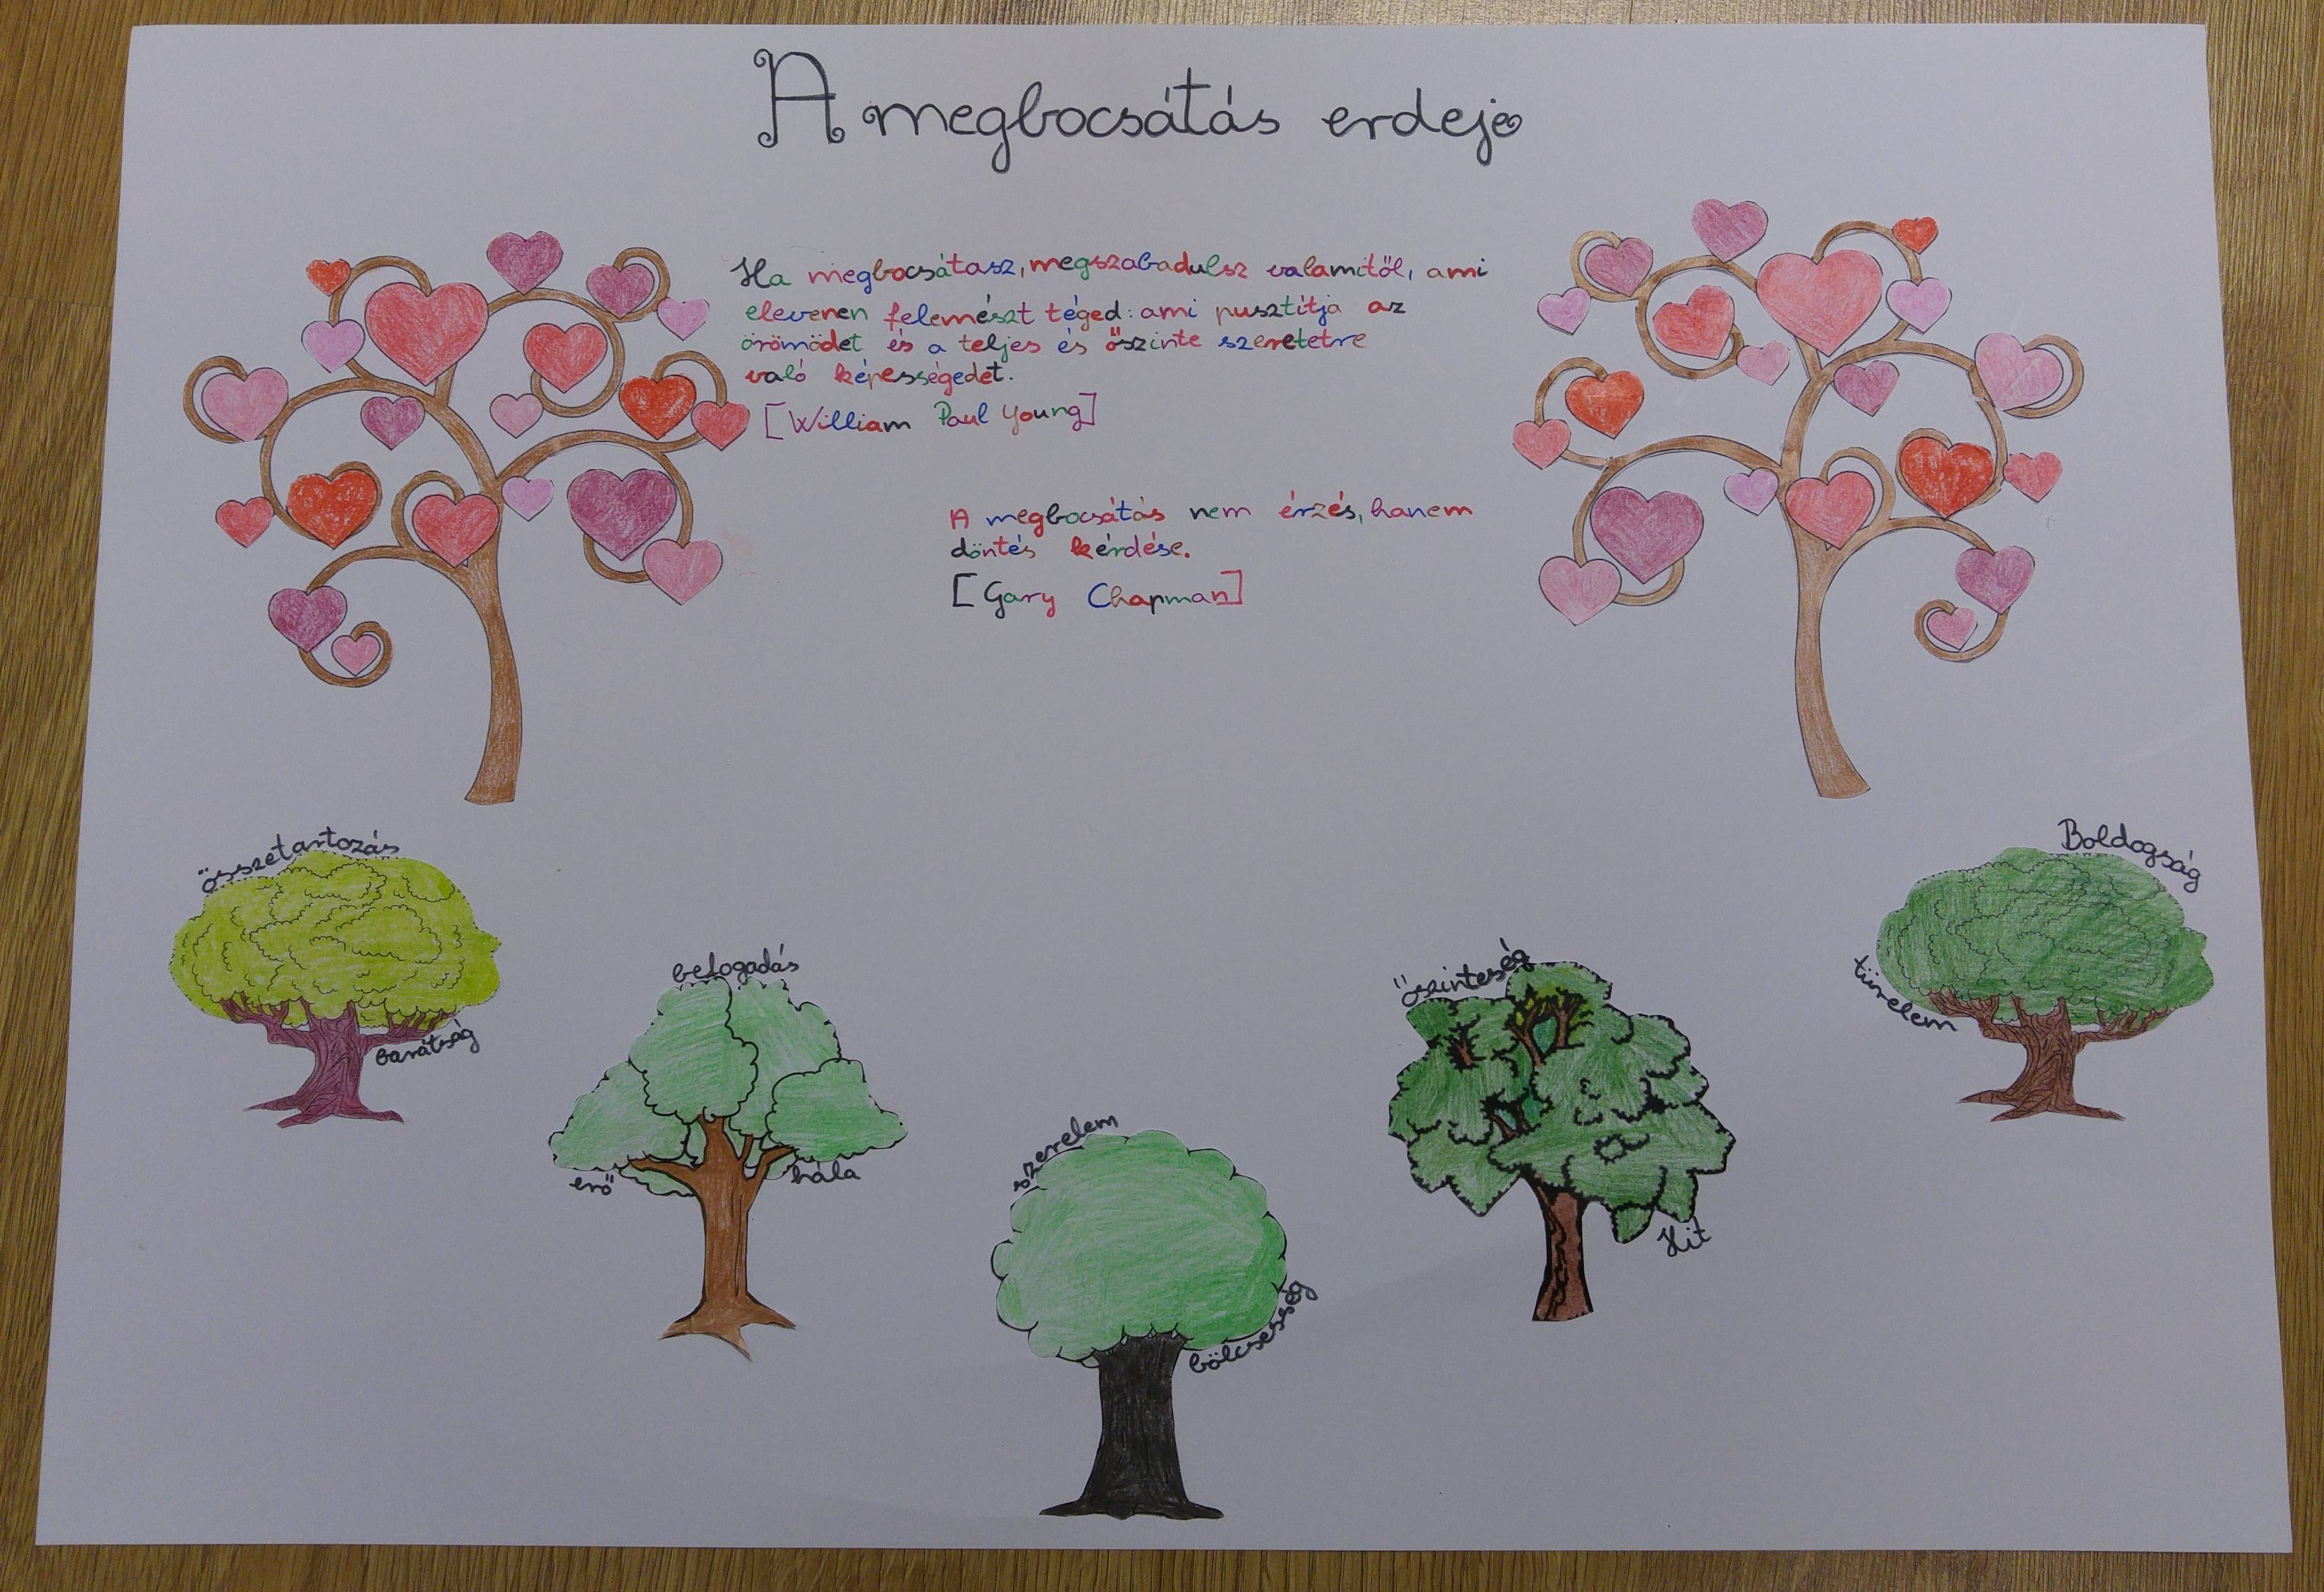 A megbocsátás erdeje
Ha megbocsátasz, megszabadulsz valamitől, ami
elevenen felemészt téged: ami pusztítja az
örömödet és a teljes és őszinte szeretetre
való képességedet.
[William Paul Young]
A megbocsátás nem érzés, hanem
döntés kérdése.
[Gary Chapman]
összetartozás
barátság
befogadás
erő
hála
szerelem
bölcsesség
őszinteség
Hit
Boldogság
türelem